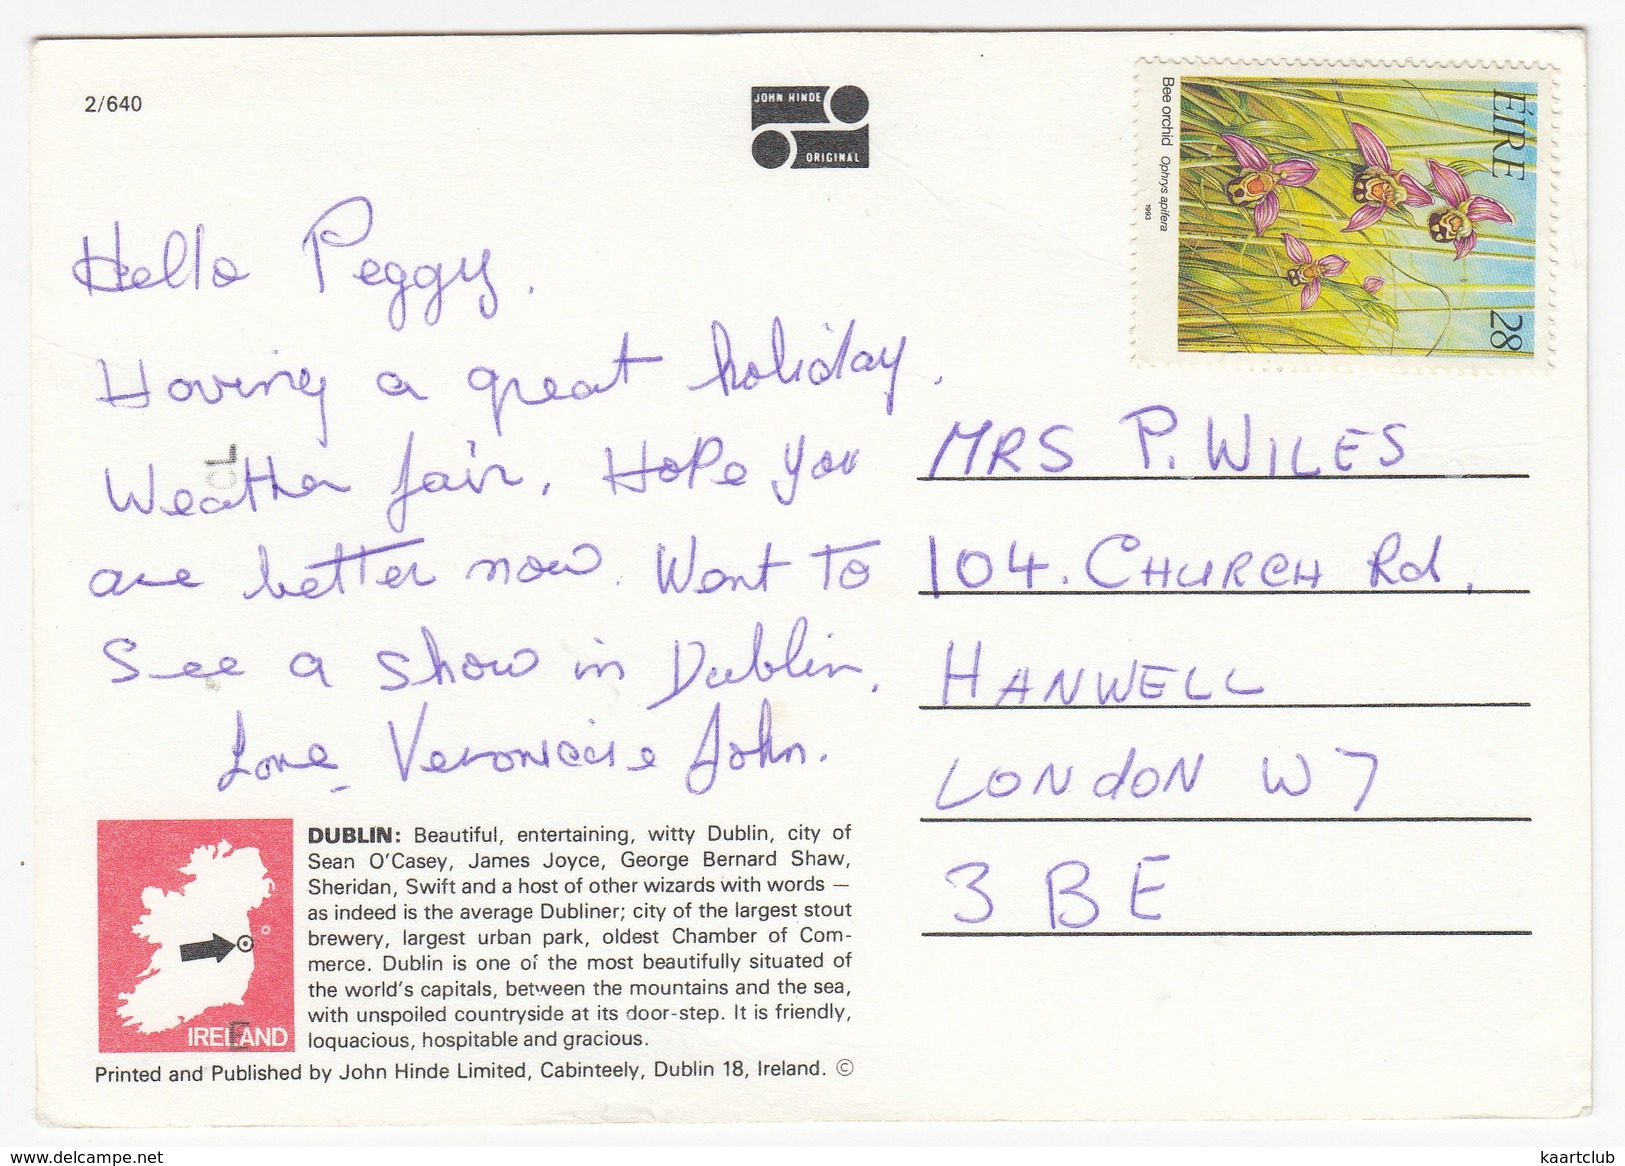 2/640
JOHN HINDE
ORIGINAL
ÉIRE
28
Bee orchid Ophrys apifera
1993
Hello Peggy.
Having a great holiday.
Weather fair. Hope you
are better now. Went to
See a show in Dublin.
Love John.
MRS P. WILES
104. CHURCH Rd,
HANWELL
LONdON W7
3 BE
DUBLIN: Beautiful, entertaining, witty Dublin, city of
Sean O'Casey, James Joyce, George Bernard Shaw,
Sheridan, Swift and a host of other wizards with words —
as indeed is the average Dubliner; city of the largest stout
brewery, largest urban park, oldest Chamber of Com-
merce. Dublin is one of the most beautifully situated of
the world's capitals, between the mountains and the sea,
with unspoiled countryside at its door-step. It is friendly,
loquacious, hospitable and gracious.
IRELAND
Printed and Published by John Hinde Limited, Cabinteely, Dublin 18, Ireland. ©
www.delcampe.net
kaartclub